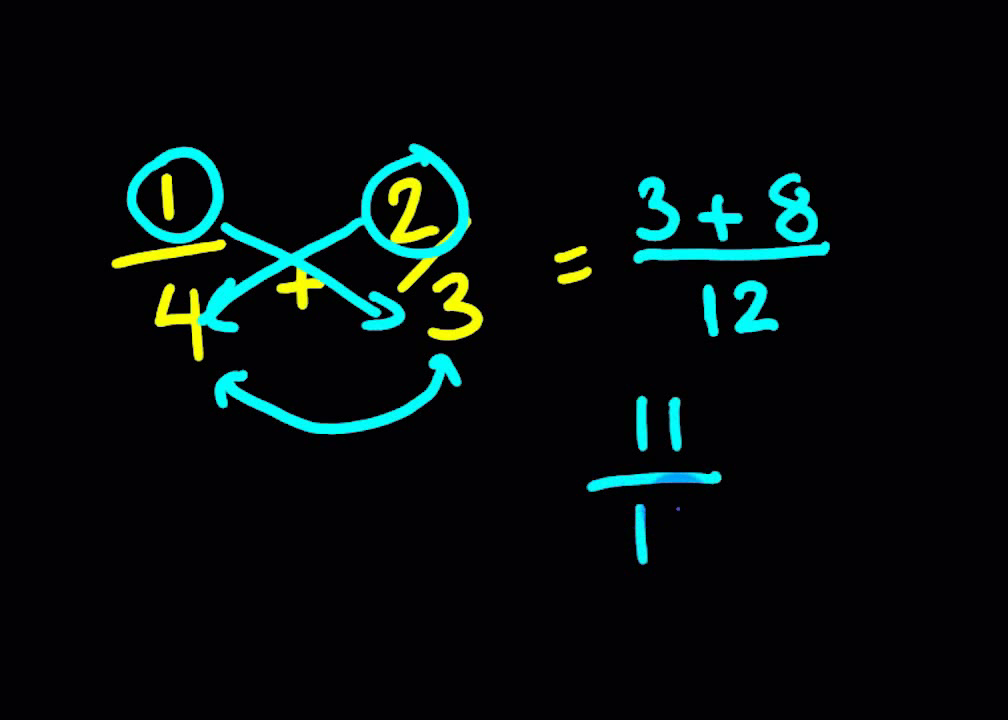 1/4 + 2/3 = 3+8/12
11/1